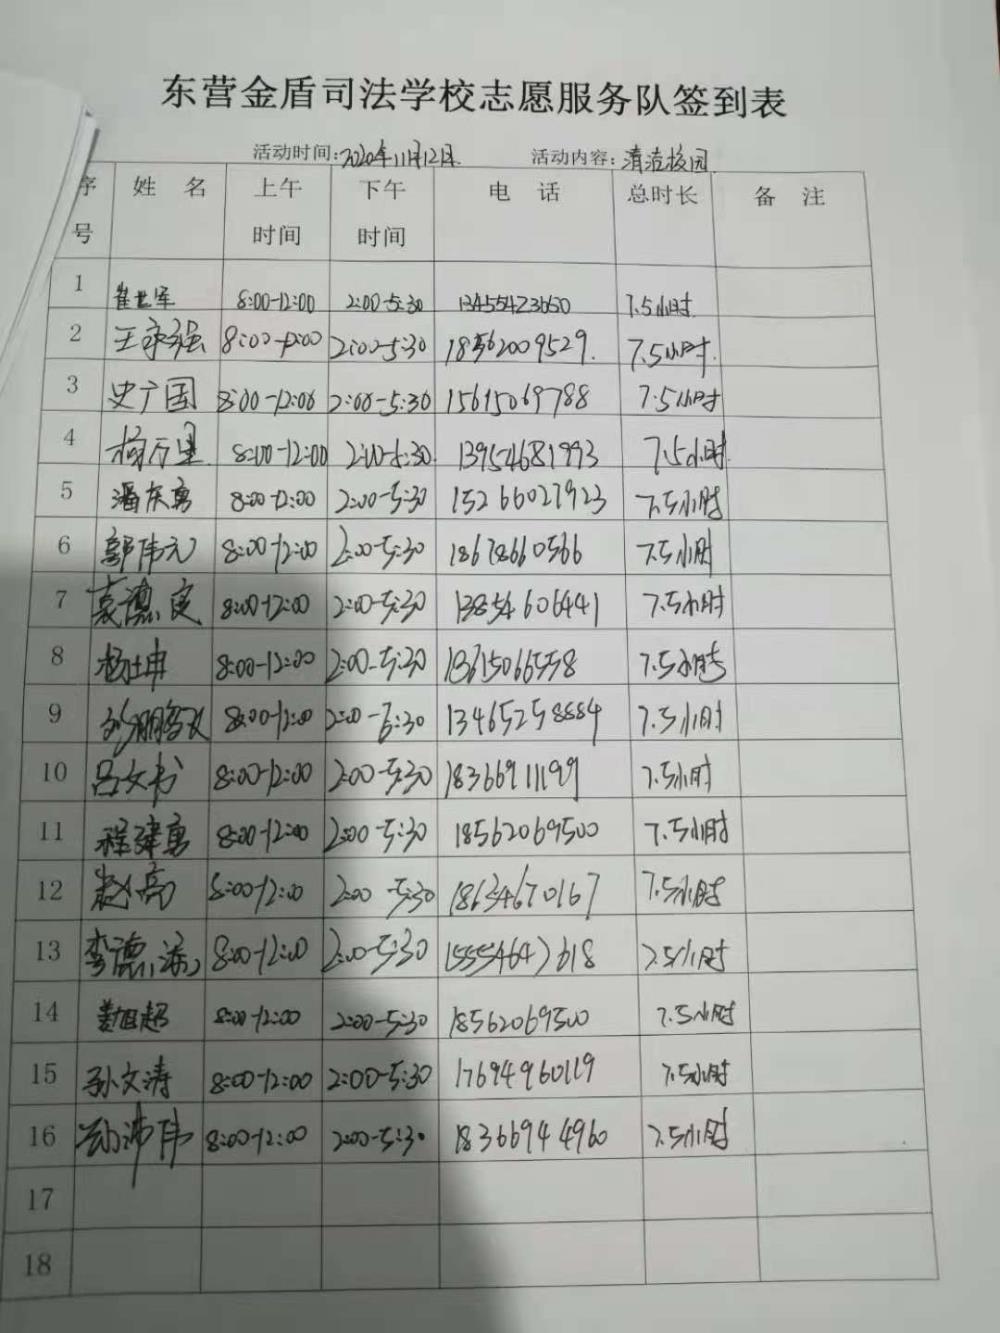 东营金盾司法学校志愿服务队签到表
活动时间:2020年11月12日. 活动内容:清洁校园
序号 姓 名 上午时间 下午时间 电 话 总时长 备 注
1 崔世军 8:00-12:00 2:00-5:30 13455423650 7.5小时
2 王永强 8:00-12:00 2:00-5:30 18562009529. 7.5小时.
3 史广国 8:00-12:00 2:00-5:30 15615069788 7.5小时
4 杨万里. 8:00-12:00 2:00-5:30. 13954681993 7.5小时
5 潘庆勇 8:00-12:00 2:00-5:30 15266027923 7.5小时
6 郭伟元 8:00-12:00 2:00-5:30 18678660566 7.5小时
7 8:00-12:00 2:00-5:30 13854606441 7.5小时
8 8:00-12:00 2:00-5:30 13615066558 7.5小时
9 8:00-12:00 2:00-5:30 13465258884 7.5小时
10 吕文书 8:00-12:00 2:00-5:30 18366911199 7.5小时
11 程建勇 8:00-12:00 2:00-5:30 18562069500 7.5小时
12 赵亮 8:00-12:00 2:00-5:30 18634670167 7.5小时
13 8:00-12:00 2:00-5:30 15554642618 7.5小时
14 姜旭超 8:00-12:00 2:00-5:30 18562069500 7.5小时
15 孙文涛 8:00-12:00 2:00-5:30 17694960119 7.5小时
16 8:00-12:00 2:00-5:30 18366944960 7.5小时
17
18